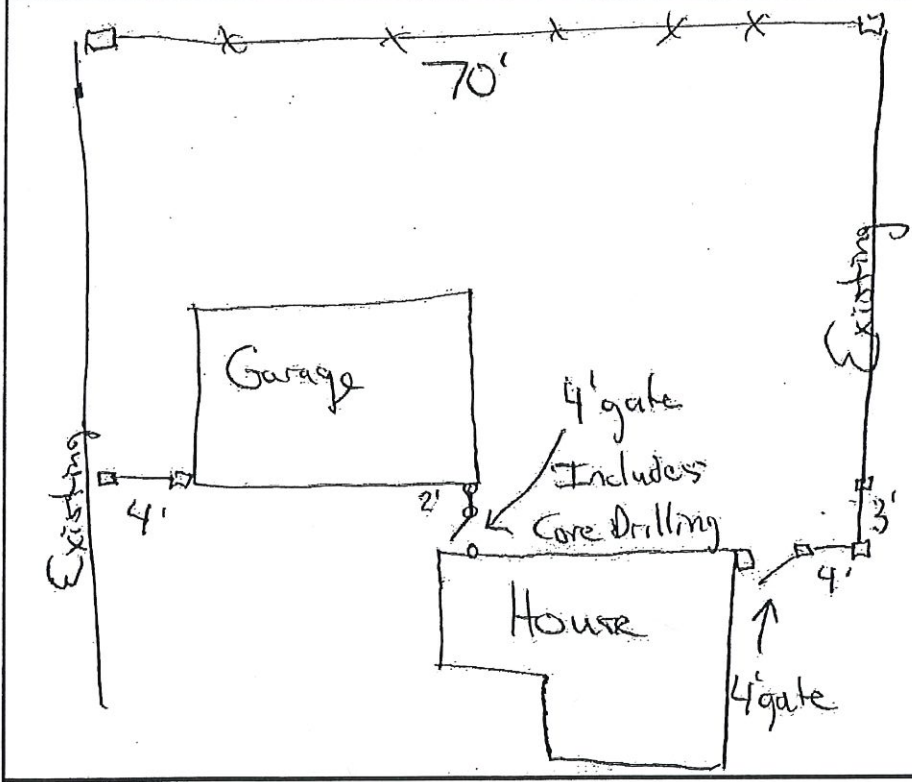 70'
Existing
Garage
4' gate
Includes
Core Drilling
2'
Existing
4'
3'
4'
House
4' gate